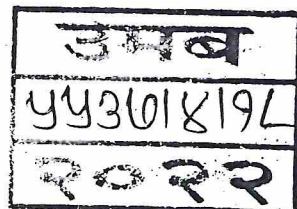 उमब
५५३७|४|१८
२०२२